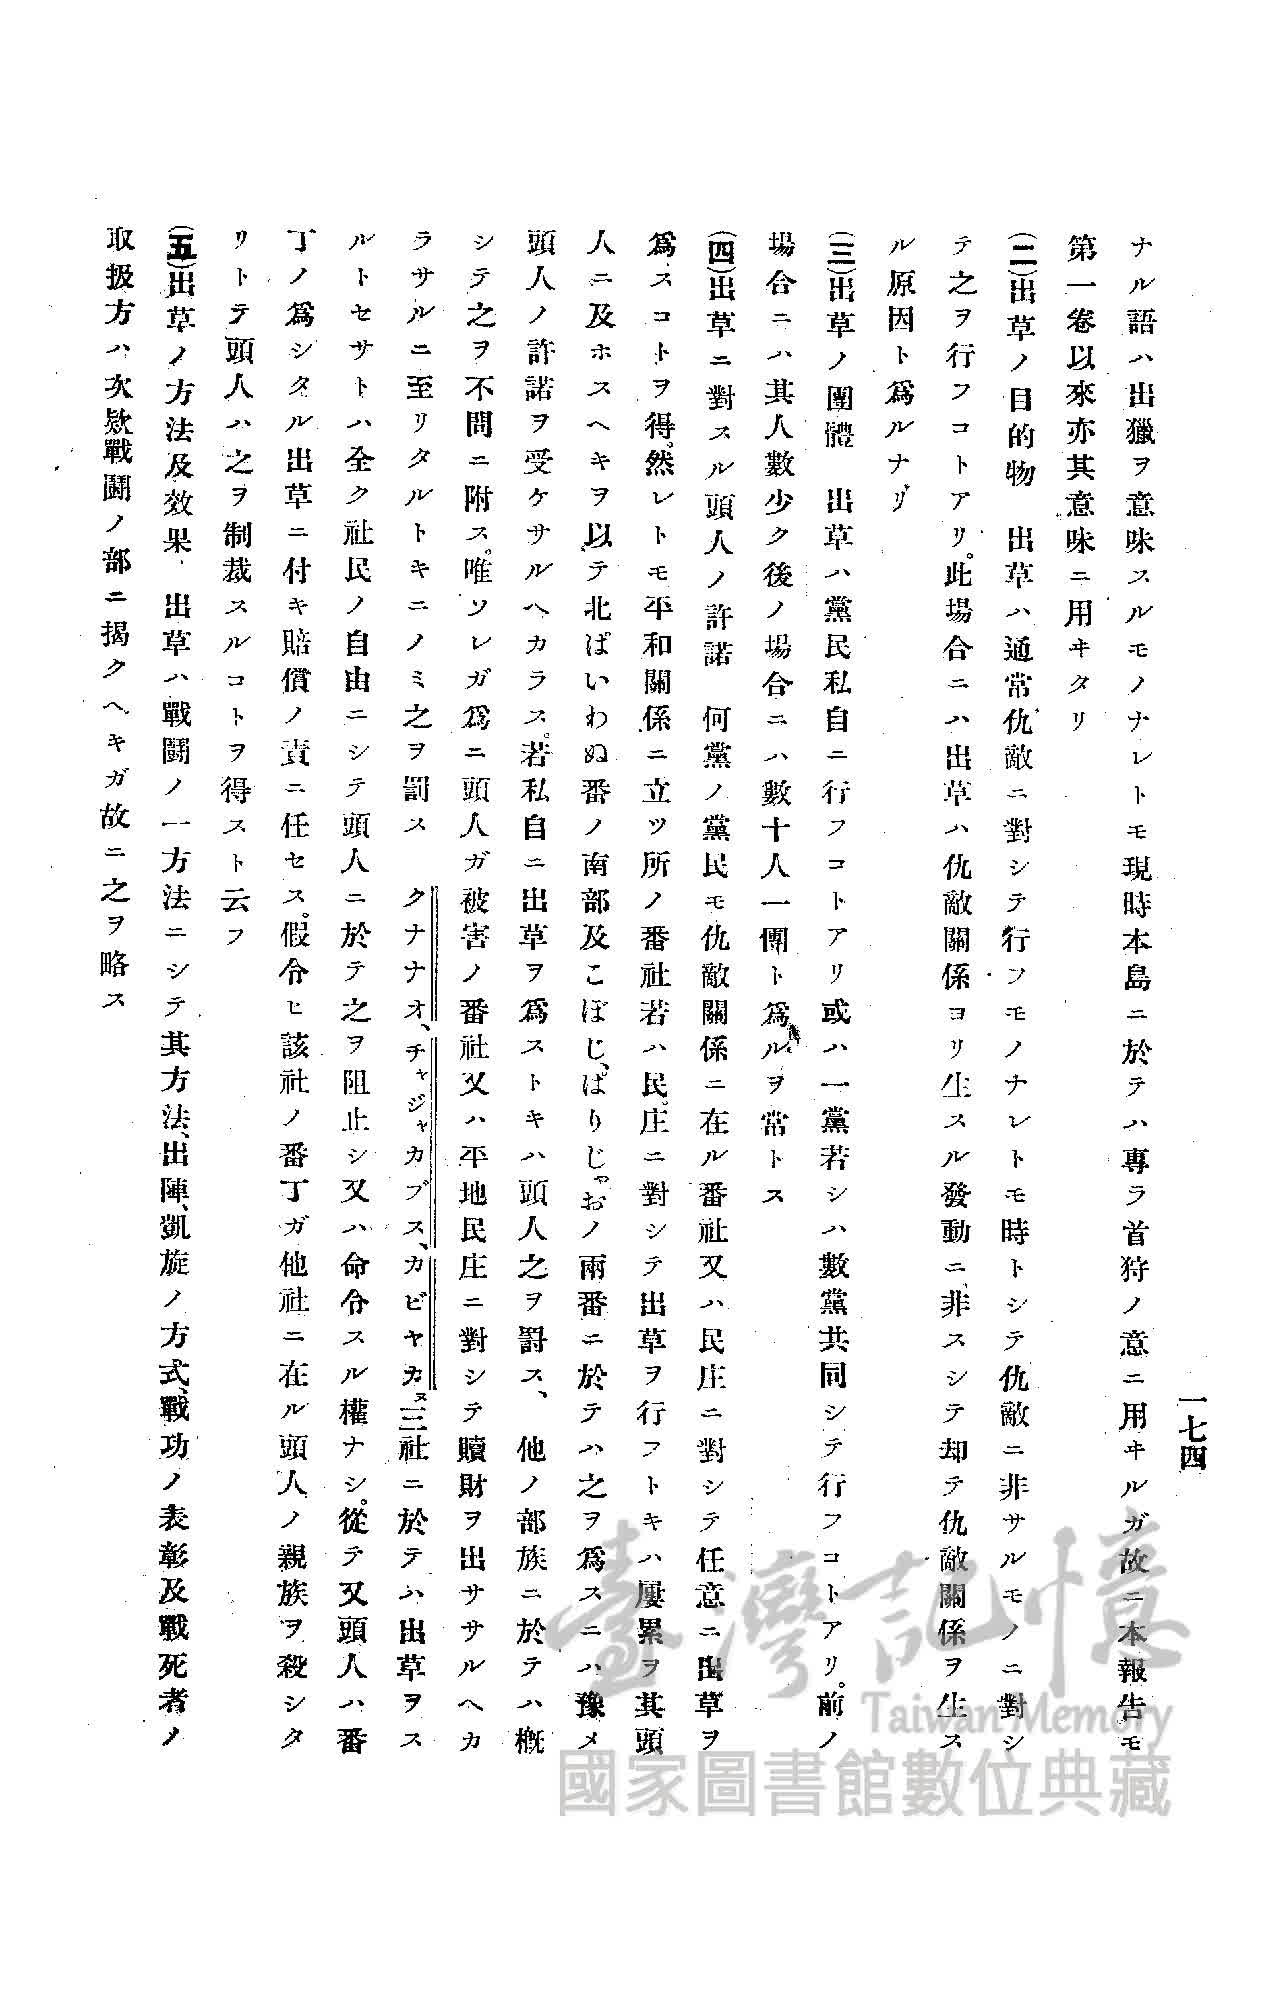 一七四
ナル語ハ出獵ヲ意味スルモノナレトモ現時本島ニ於テハ專ラ首狩ノ意ニ用ヰルガ故ニ本報告モ
第一卷以來亦其意味ニ用ヰタリ
(二)出草ノ目的物　出草ハ通常仇敵ニ對シテ行フモノナレトモ時トシテ仇敵ニ非サルモノニ對シ
テ之ヲ行フコトアリ。此場合ニハ出草ハ仇敵關係ヨリ生スル發動ニ非スシテ却テ仇敵關係ヲ生ス
ル原因ト爲ルナリ
(三)出草ノ團體　出草ハ黨民私自ニ行フコトアリ或ハ一黨若シハ數黨共同シテ行フコトアリ。前ノ
場合ニハ其人數少ク後ノ場合ニハ數十人一團ト爲ルヲ常トス
(四)出草ニ對スル頭人ノ許諾　何黨ノ黨民モ仇敵關係ニ在ル番社又ハ民庄ニ對シテ任意ニ出草ヲ
爲スコトヲ得。然レトモ平和關係ニ立ツ所ノ番社若ハ民庄ニ對シテ出草ヲ行フトキハ屢累ヲ其頭
人ニ及ホスヘキヲ以テ北ぱいわぬ番ノ南部及こぼじ、ぱりじゃおノ兩番ニ於テハ之ヲ爲スニハ豫メ
頭人ノ許諾ヲ受ケサルヘカラス。若私自ニ出草ヲ爲ストキハ頭人之ヲ罸ス、他ノ部族ニ於テハ概
シテ之ヲ不問ニ附ス。唯ソレガ爲ニ頭人ガ被害ノ番社又ハ平地民庄ニ對シテ贖財ヲ出ササルヘカ
ラサルニ至リタルトキニノミ之ヲ罰ス　クナナオ、チャジャカブス、カビヤカヌ三社ニ於テハ出草ヲス
ルトセサトハ全ク社民ノ自由ニシテ頭人ニ於テ之ヲ阻止シ又ハ命令スル權ナシ。從テ又頭人ハ番
丁ノ爲シタル出草ニ付キ賠償ノ責ニ任セス。假令ヒ該社ノ番丁ガ他社ニ在ル頭人ノ親族ヲ殺シタ
リトテ頭人ハ之ヲ制裁スルコトヲ得スト云フ
(五)出草ノ方法及效果　出草ハ戰鬪ノ一方法ニシテ其方法、出陣、凱旋ノ方式、戰功ノ表彰及戰死者ノ
取扱方ハ次欵戰鬪ノ部ニ揭クヘキガ故ニ之ヲ略ス
臺灣記憶
Taiwan Memory
國家圖書館數位典藏